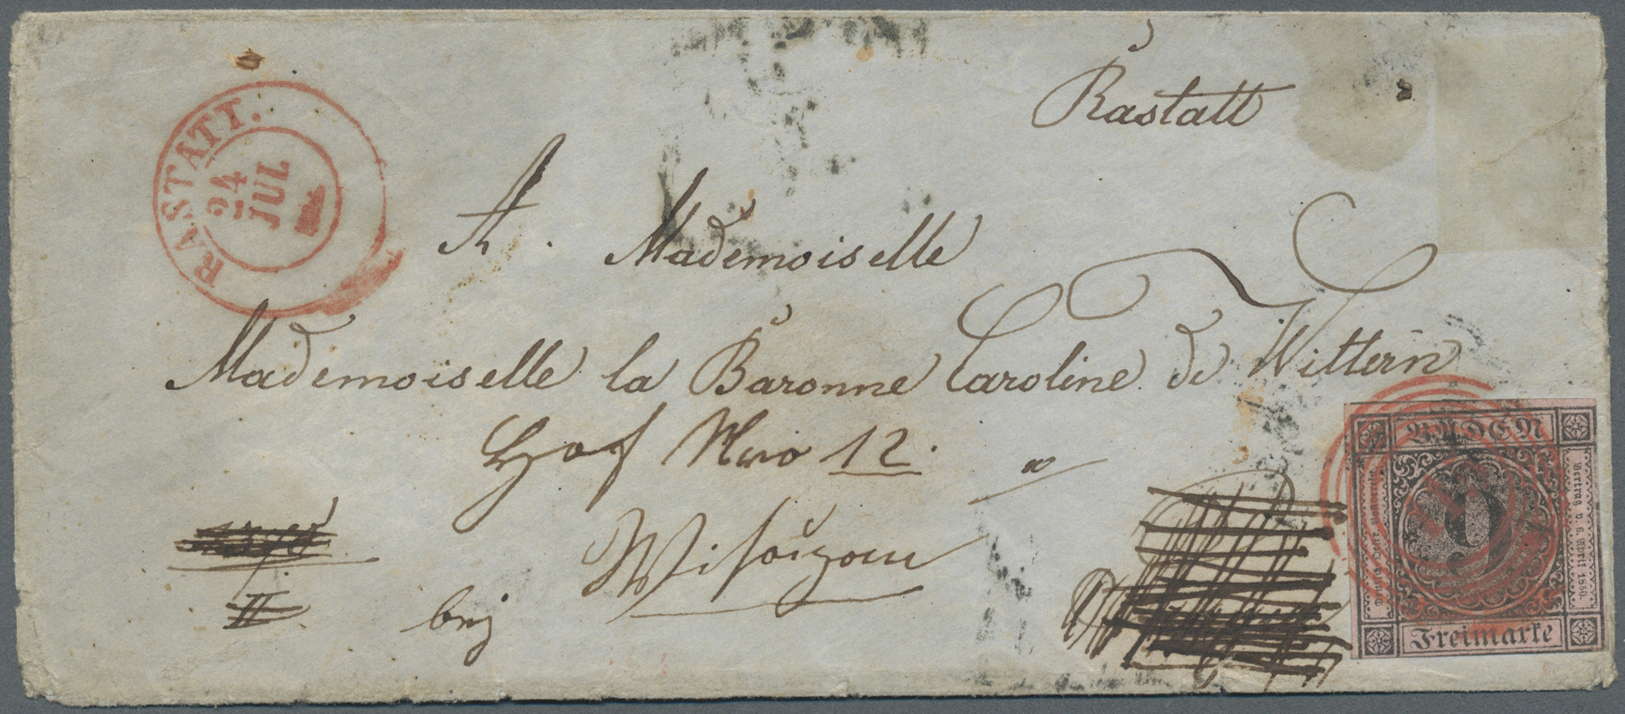 Rastatt
RASTATT.
24
JUL
A.
Mademoiselle
Mademoiselle la Baronne Caroline de Wittern
Hof Nro 12.
bej
BADEN
9
Vertrag v. 6. April 1850.
Freimarke